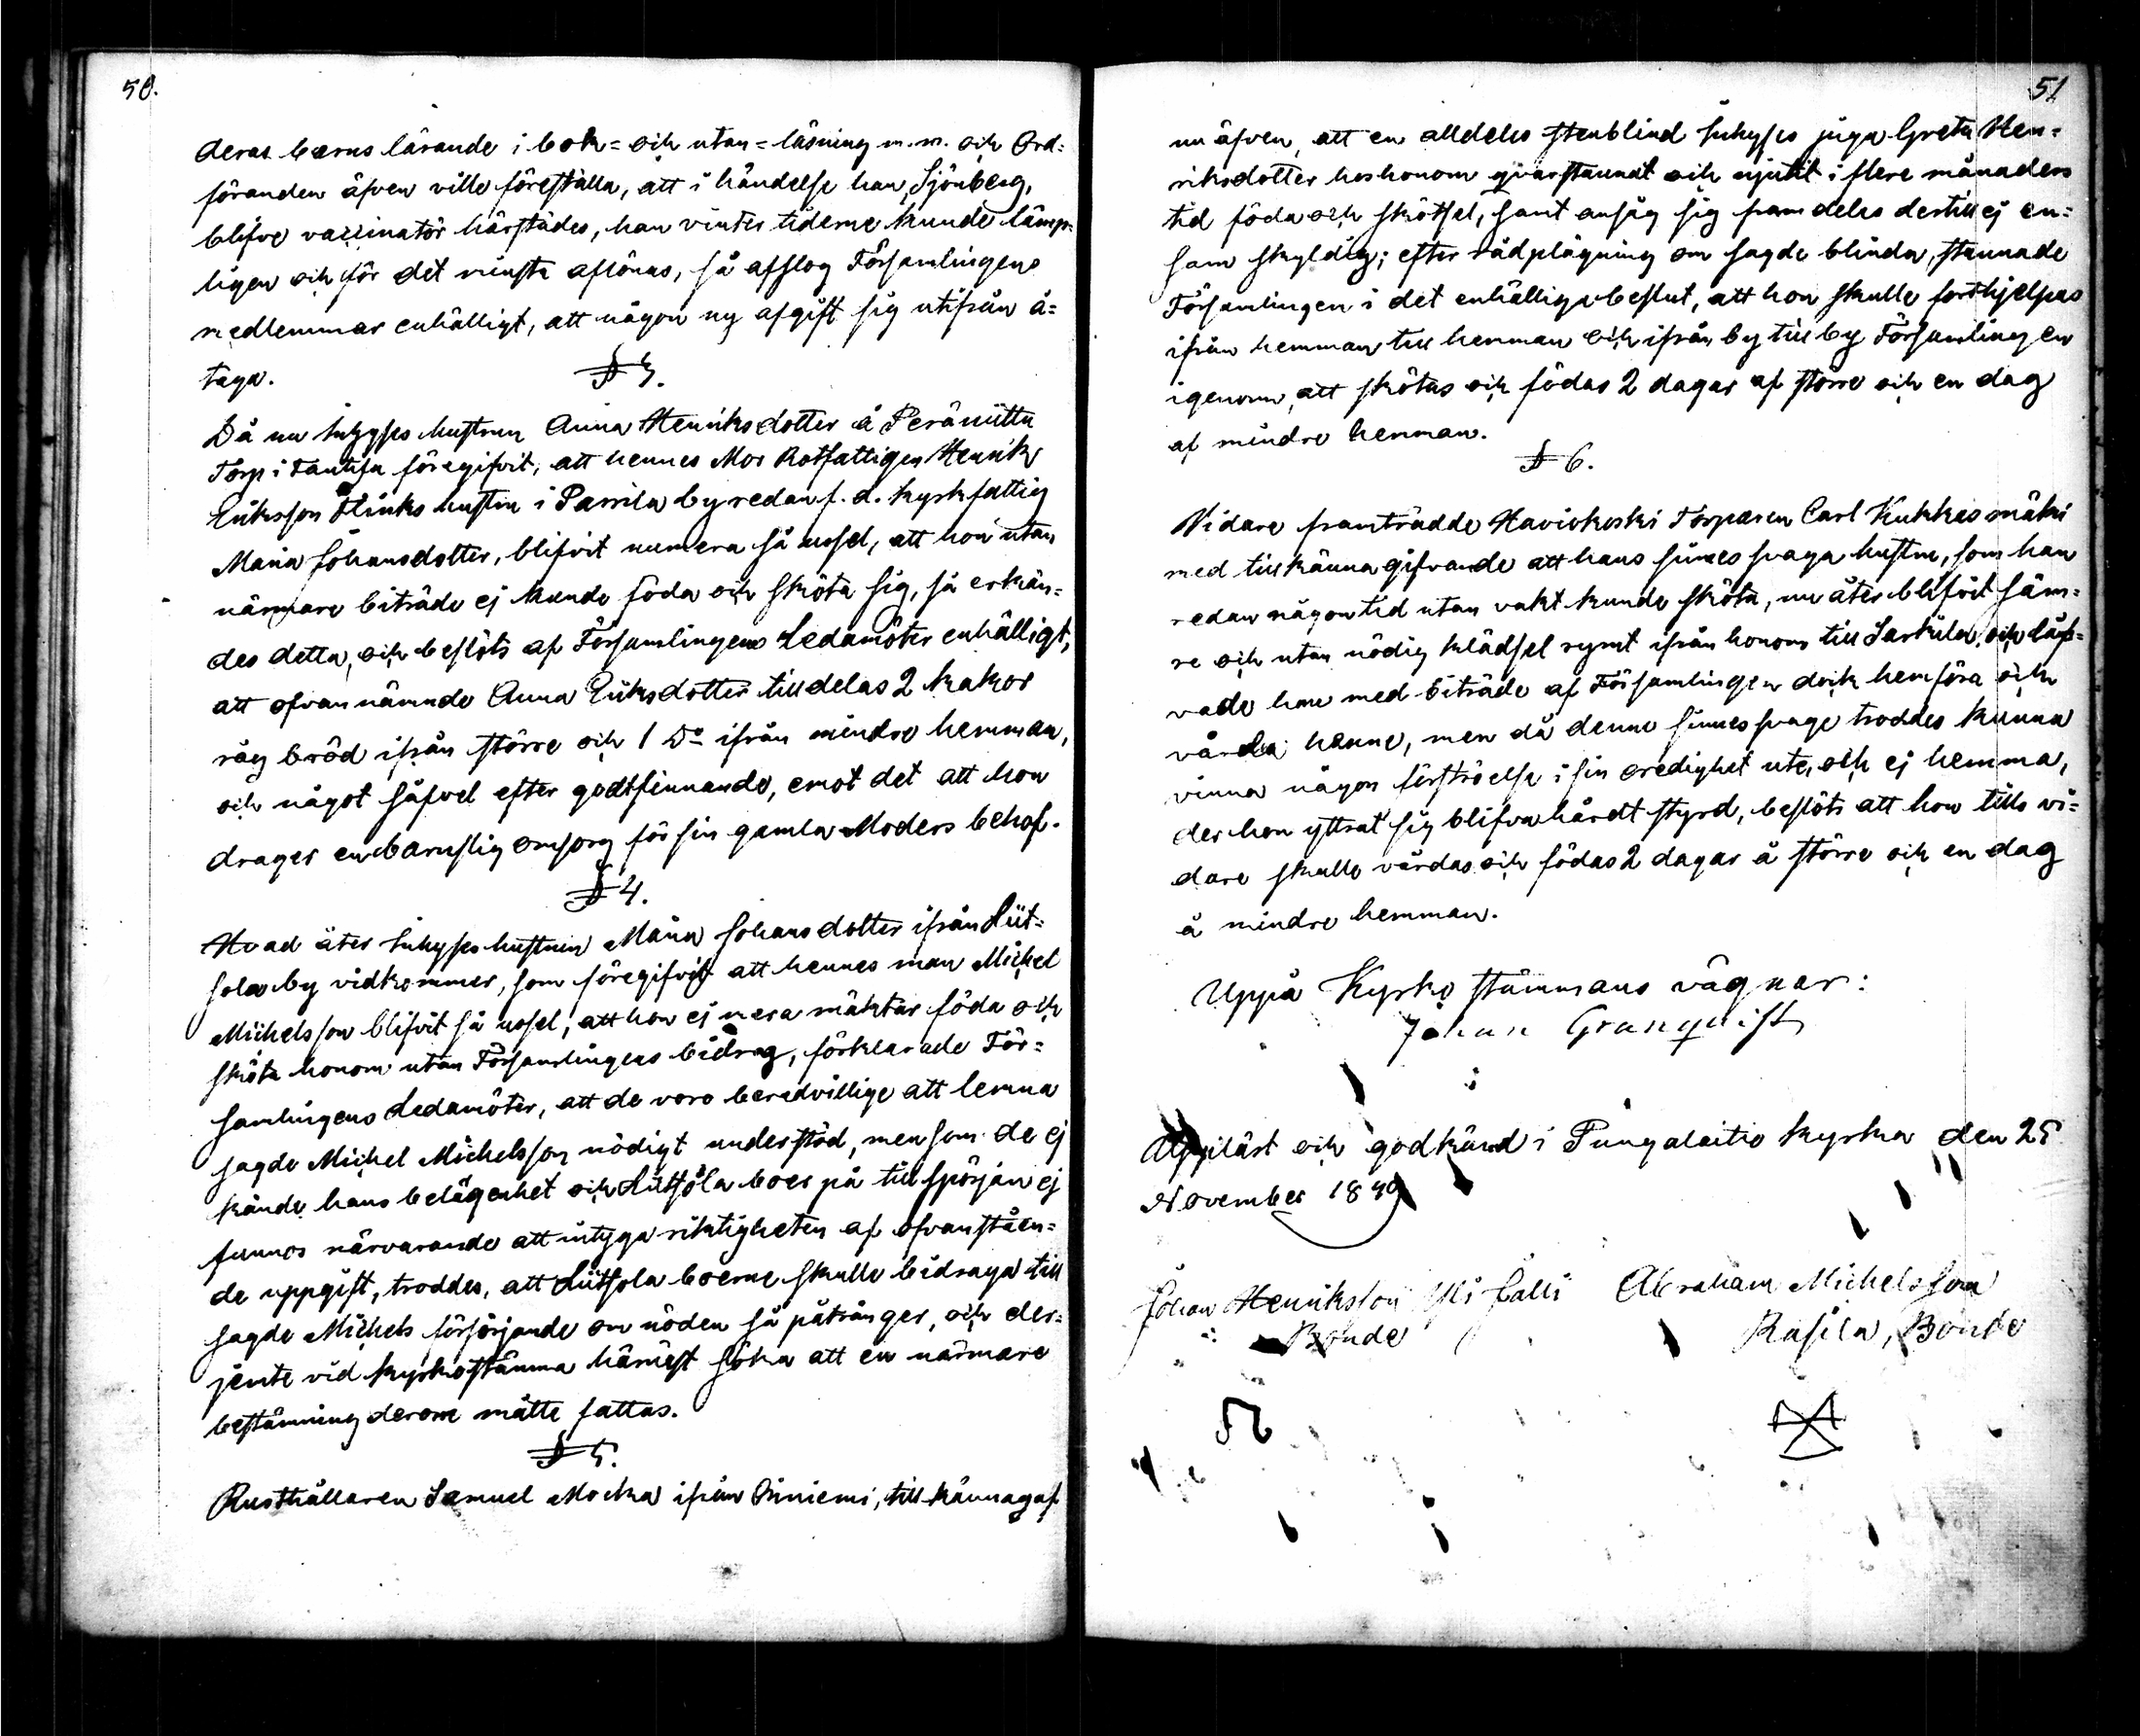 50.
deras barns lärande i bok= och utan=läsning m. m. och Ord=
föranden äfven ville föreställa, att i händelse han, Sjönberg,
blifve vaccinatör härstädes, han vinter tiderne kunde lämp=
ligen och för det minsta aflönas, så afslog Församlingens
medlemmar enhälligt, att någon ny afgift sig utifrån å=
taga.
§ 3.
Då nu Inhyses hustrun Anna Henriksdotter å Peräniittu
Torp i Tantila föregifvit, att hennes Mor Rotfattigen Henrik
Eriksson Flinks hustru i Parrila by redan f. d. kyrkfattig
Maria Johansdotter, blifvit numera så ussel, att hon utan
närmare biträde ej kunde föda och sköta sig, så erkän=
des detta, och beslöts af Församlingens Ledamöter enhälligt,
att ofvannämnde Anna Eriksdotter tilldelas 2 kakor
råg bröd ifrån större och 1 Do ifrån mindre hemman,
och något såfvel efter godtfinnande, emot det att hon
drager en barnslig omsorg för sin gamla Moders behof.
§ 4.
Hvad åter Inhyses hustrun Maria Johansdotter ifrån Liit=
sola by vidkommer, som föregifvit att hennes man Michel
Michelsson blifvit så ussel, att hon ej mera mäktar föda och
sköta honom utan Församlingens bidrag, förklarade För=
samlingens Ledamöter, att de voro beredvillige att lemna
sagde Michel Michelsson nödigt understöd, men som de ej
kände hans belägenhet och Liitsola boer på tillspörjan ej
funnos närvarande att intyga riktigheten af ofvanståen=
de uppgift, troddes, att Liitsola boerne skulle bidraga till
sagde Michels försörjande om nöden så påtränger, och der=
jemte vid kyrkostämma härnäst söka att en närmare
bestämning derom måtte fattas.
§ 5.
Rusthållaren Samuel Mocka ifrån Onniemi, tillkännagaf
51
nu äfven, att en alldeles stenblind Inhyses piga Greta Hen=
riksdotter hos honom qvarstannat och njutit i flere månaders
tid föda och skötsel, samt ansåg sig framdeles dertill ej en=
sam skyldig; efter rådplägning om sagde blinda, stannade
Församlingen i det enhälliga beslut, att hon skulle forthjelpas
ifrån hemman till hemman och ifrån by till by Församlingen
igenom, att skötas och födas 2 dagar af större och en dag
af mindre hemman.
§ 6.
Vidare framträdde Haviokoski Torparen Carl Kukkasmäki
med tillkännagifvande att hans sinnes svaga hustru, som han
redan någon tid utan vakt kunde sköta, nu åter blifvit säm=
re och utan nödig klädsel rymt ifrån honom till Sarkila, och låf=
vade han med biträde af Församlingen dock hemföra och
vårda henne, men då denne sinnessvage troddes kunna
vinna någon förströelse i sin oredighet ute, och ej hemma,
der hon yttrat sig blifva hårdt styrd, beslöts att hon tills vi=
dare skulle vårdas och födas 2 dagar å större och en dag
å mindre hemman.
Uppå Kyrko stämmans vägnar:
Johan Granqvist
Uppläst och godkänd i Pungalaitio kyrka den 25
November 1849
Johan Henriksson Yli Jalli Abraham Michelsson
Bonde Rasila, Bonde